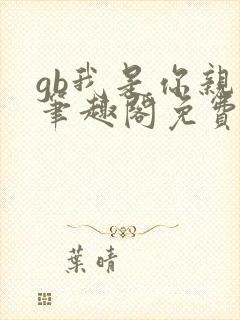 gb我是你親
筆趣閣免費
葉晴